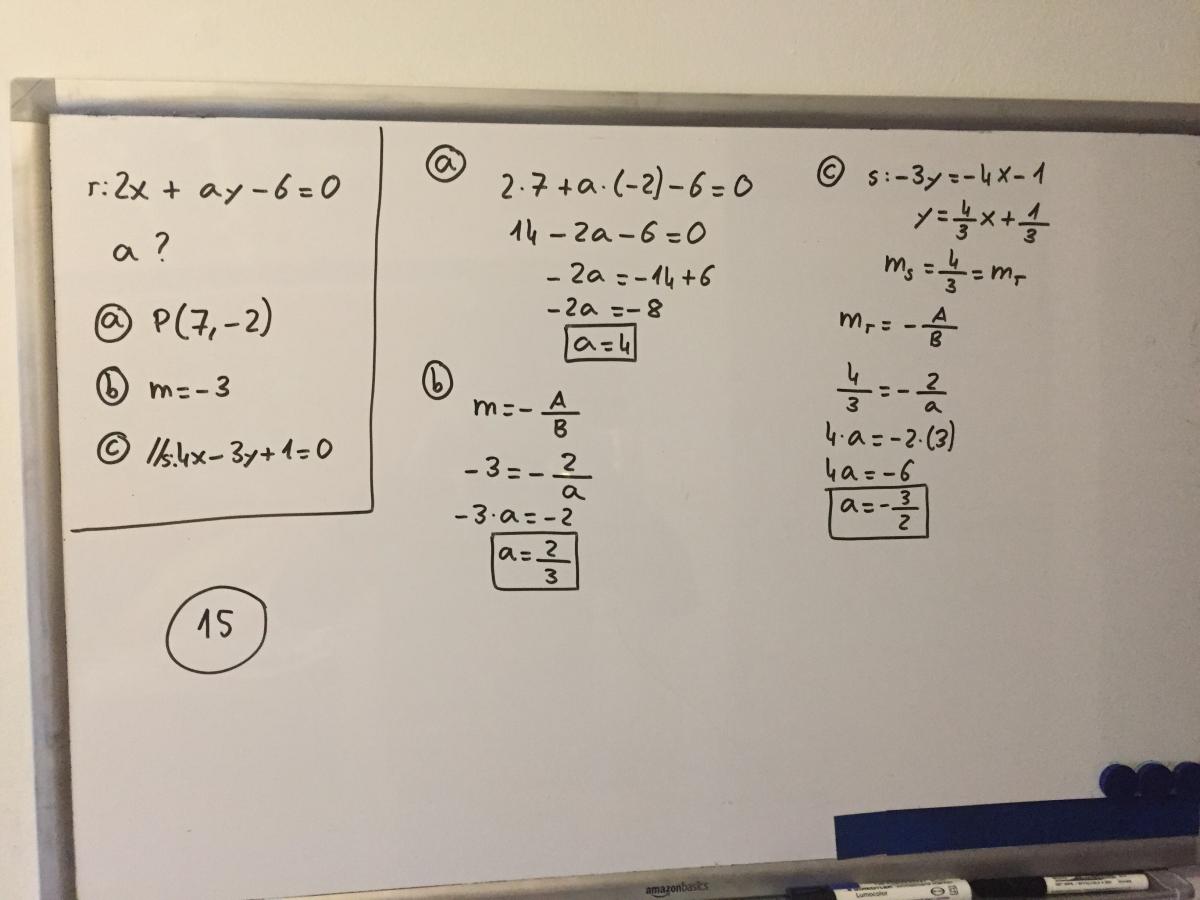 r: 2x + ay - 6 = 0
a ?
ⓐ P(7, -2)
ⓑ m = -3
ⓒ //s: 4x - 3y + 1 = 0
15
ⓐ
2·7 + a·(-2) - 6 = 0
14 - 2a - 6 = 0
-2a = -14 + 6
-2a = -8
a = 4
ⓑ
m = - A/B
-3 = - 2/a
-3·a = -2
a = 2/3
ⓒ s: -3y = -4x - 1
y = 4/3 x + 1/3
mₛ = 4/3 = mᵣ
mᵣ = - A/B
4/3 = - 2/a
4·a = -2·(3)
4a = -6
a = - 3/2
amazonbasics
Lumocolor